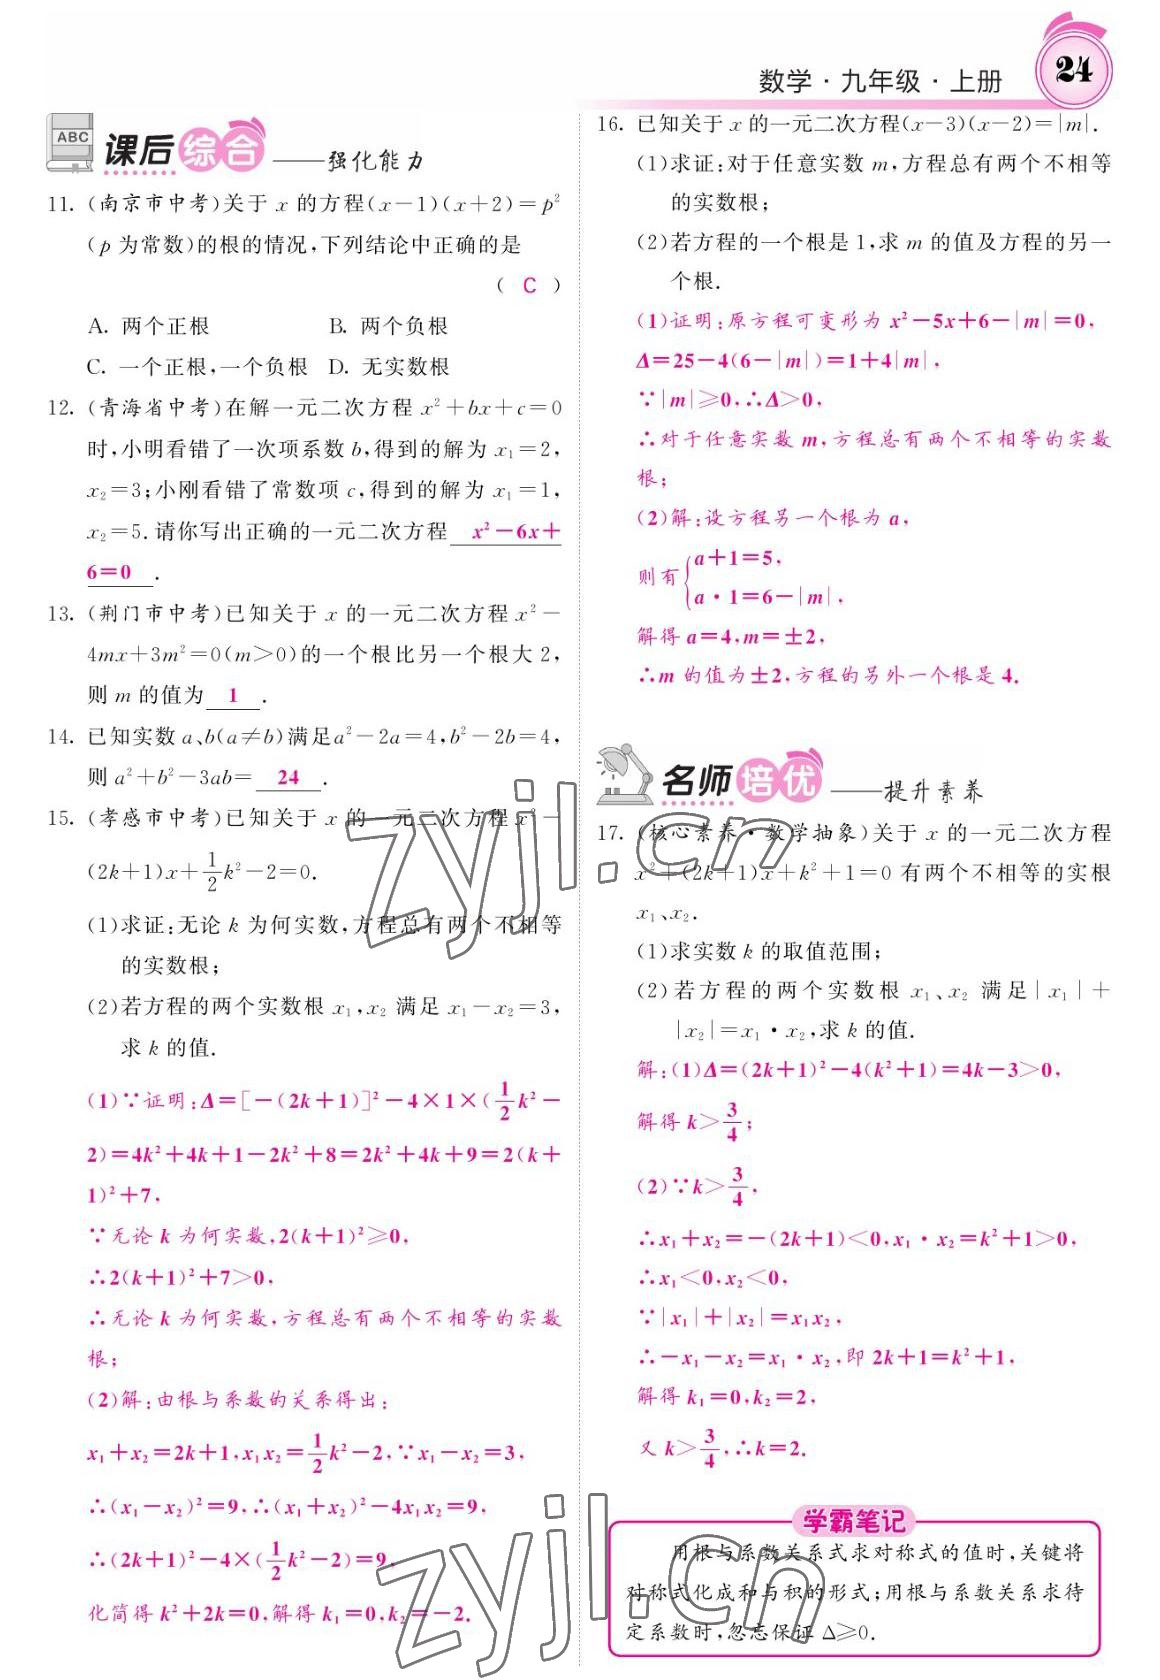 数学·九年级·上册
24
ABC
课后综合——强化能力
11. (南京市中考)关于 x 的方程(x－1)(x＋2)＝p²
(p 为常数)的根的情况,下列结论中正确的是
( C )
A. 两个正根 B. 两个负根
C. 一个正根,一个负根 D. 无实数根
12. (青海省中考)在解一元二次方程 x²＋bx＋c＝0
时,小明看错了一次项系数 b,得到的解为 x₁＝2,
x₂＝3;小刚看错了常数项 c,得到的解为 x₁＝1,
x₂＝5.请你写出正确的一元二次方程 x²－6x＋
6＝0 .
13. (荆门市中考)已知关于 x 的一元二次方程 x²－
4mx＋3m²＝0(m＞0)的一个根比另一个根大 2,
则 m 的值为 1 .
14. 已知实数 a、b(a≠b)满足a²－2a＝4,b²－2b＝4,
则 a²＋b²－3ab＝ 24 .
15. (孝感市中考)已知关于 x 的一元二次方程 x²－
(2k＋1)x＋1/2k²－2＝0.
(1)求证:无论 k 为何实数,方程总有两个不相等
的实数根;
(2)若方程的两个实数根 x₁,x₂ 满足 x₁－x₂＝3,
求 k 的值.
(1)∵证明:Δ＝[－(2k＋1)]²－4×1×(1/2k²－
2)＝4k²＋4k＋1－2k²＋8＝2k²＋4k＋9＝2(k＋
1)²＋7,
∵无论 k 为何实数,2(k＋1)²≥0,
∴2(k＋1)²＋7＞0,
∴无论 k 为何实数,方程总有两个不相等的实数
根;
(2)解:由根与系数的关系得出:
x₁＋x₂＝2k＋1,x₁x₂＝1/2k²－2,∵x₁－x₂＝3,
∴(x₁－x₂)²＝9,∴(x₁＋x₂)²－4x₁x₂＝9,
∴(2k＋1)²－4×(1/2k²－2)＝9,
化简得 k²＋2k＝0,解得 k₁＝0,k₂＝－2.
16. 已知关于 x 的一元二次方程(x－3)(x－2)＝|m|.
(1)求证:对于任意实数 m,方程总有两个不相等
的实数根;
(2)若方程的一个根是 1,求 m 的值及方程的另一
个根.
(1)证明:原方程可变形为 x²－5x＋6－|m|＝0,
Δ＝25－4(6－|m|)＝1＋4|m|,
∵|m|≥0,∴Δ＞0,
∴对于任意实数 m,方程总有两个不相等的实数
根;
(2)解:设方程另一个根为 a,
则有{a＋1＝5,
a·1＝6－|m|,
解得 a＝4,m＝±2,
∴m 的值为±2,方程的另外一个根是 4.
名师培优——提升素养
17. (核心素养·数学抽象)关于 x 的一元二次方程
x²＋(2k＋1)x＋k²＋1＝0 有两个不相等的实根
x₁、x₂.
(1)求实数 k 的取值范围;
(2)若方程的两个实数根 x₁、x₂ 满足|x₁|＋
|x₂|＝x₁·x₂,求 k 的值.
解:(1)Δ＝(2k＋1)²－4(k²＋1)＝4k－3＞0,
解得 k＞3/4;
(2)∵k＞3/4,
∴x₁＋x₂＝－(2k＋1)＜0,x₁·x₂＝k²＋1＞0,
∴x₁＜0,x₂＜0,
∵|x₁|＋|x₂|＝x₁x₂,
∴－x₁－x₂＝x₁·x₂,即 2k＋1＝k²＋1,
解得 k₁＝0,k₂＝2,
又 k＞3/4,∴k＝2.
学霸笔记
用根与系数关系式求对称式的值时,关键将
对称式化成和与积的形式;用根与系数关系求待
定系数时,忽忘保证 Δ≥0.
zyjl.cn
zyjl.cn